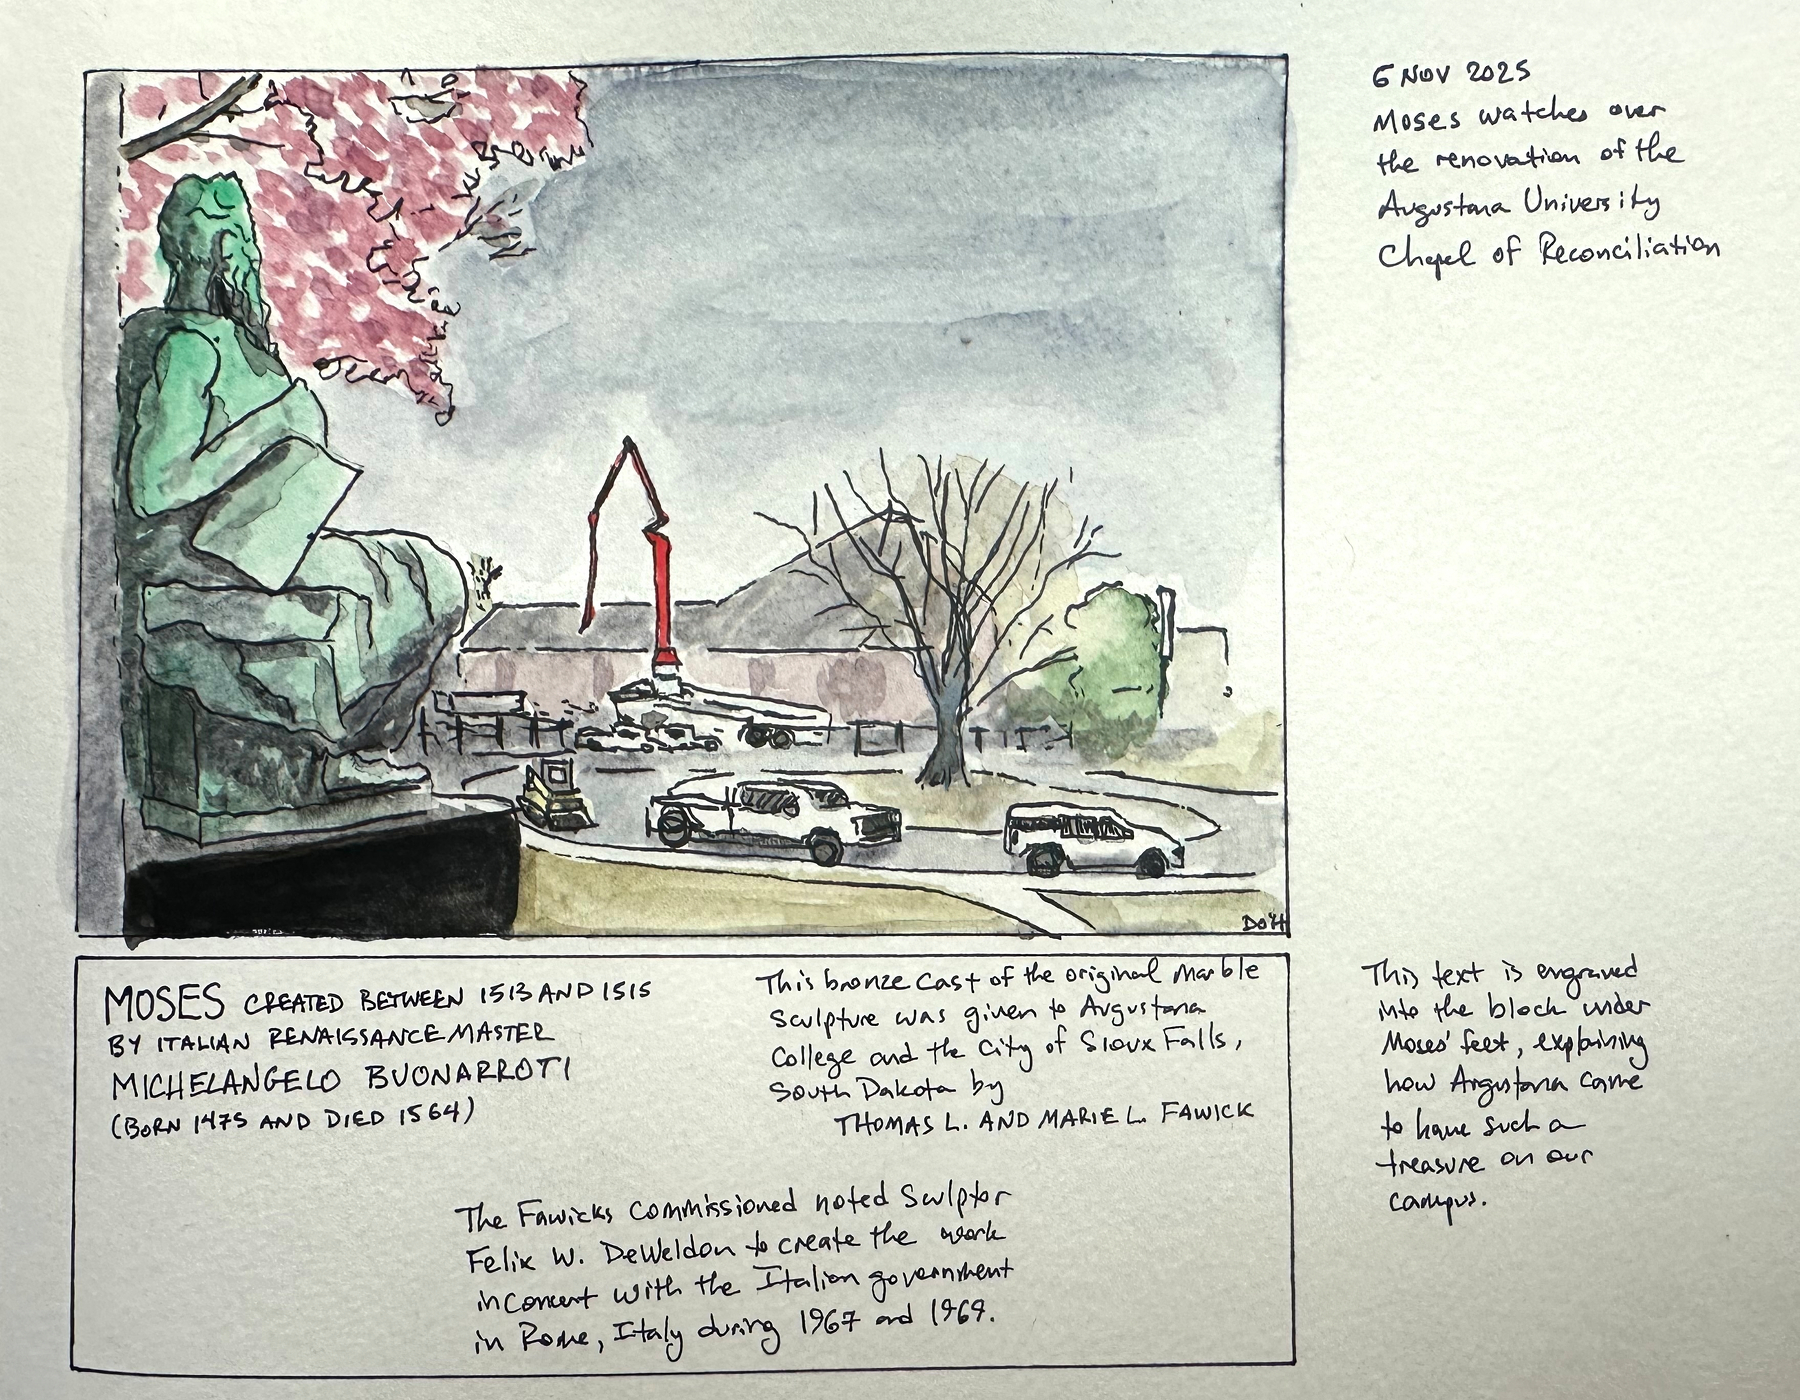 6 NOV 2025
Moses watches over
the renovation of the
Augustana University
Chapel of Reconciliation
DO'H
MOSES CREATED BETWEEN 1513 AND 1515
BY ITALIAN RENAISSANCE MASTER
MICHELANGELO BUONARROTI
(BORN 1475 AND DIED 1564)
This bronze cast of the original marble
sculpture was given to Augustana
College and the City of Sioux Falls,
South Dakota by
THOMAS L. AND MARIE L. FAWICK
The Fawicks commissioned noted sculptor
Felix W. DeWeldon to create the work
in concert with the Italian government
in Rome, Italy during 1967 and 1969.
This text is engraved
into the block under
Moses' feet, explaining
how Augustana came
to have such a
treasure on our
campus.